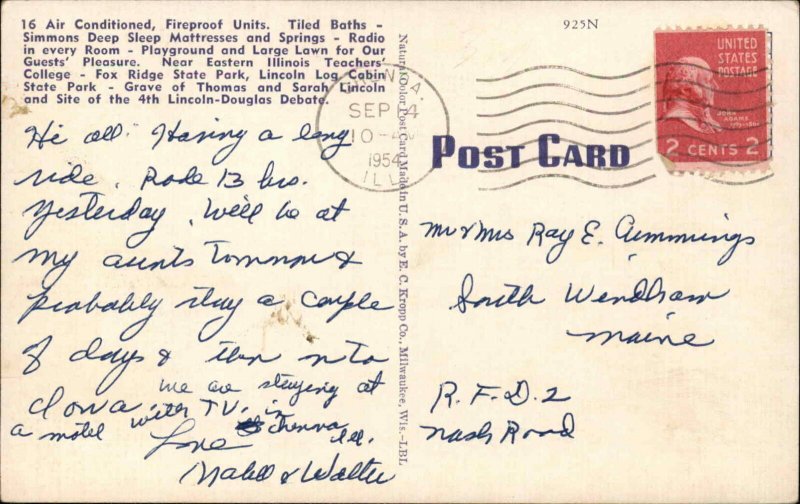 16 Air Conditioned, Fireproof Units. Tiled Baths -
Simmons Deep Sleep Mattresses and Springs - Radio
in every Room - Playground and Large Lawn for Our
Guests' Pleasure. Near Eastern Illinois Teachers'
College - Fox Ridge State Park, Lincoln Log Cabin
State Park - Grave of Thomas and Sarah Lincoln
and Site of the 4th Lincoln-Douglas Debate.
Hi all. Having a long
ride. Rode 13 hrs.
yesterday. Will be at
my aunts tomorrow &
probably stay a couple
of days & then into
Iowa. we are staying at
a motel with TV. in
Chenoa Ill.
Love
Mabel & Walter
Natural Color Post Card Made in U. S. A. by E. C. Kropp Co., Milwaukee, Wis.-LBL
925N
CHENOA.
SEP 4
10
1954
ILL
POST CARD
UNITED
STATES
POSTAGE
JOHN
ADAMS
2 CENTS 2
Mr & Mrs Ray E. Cummings
South Windham
Maine
R. F. D. 2
Nash Road